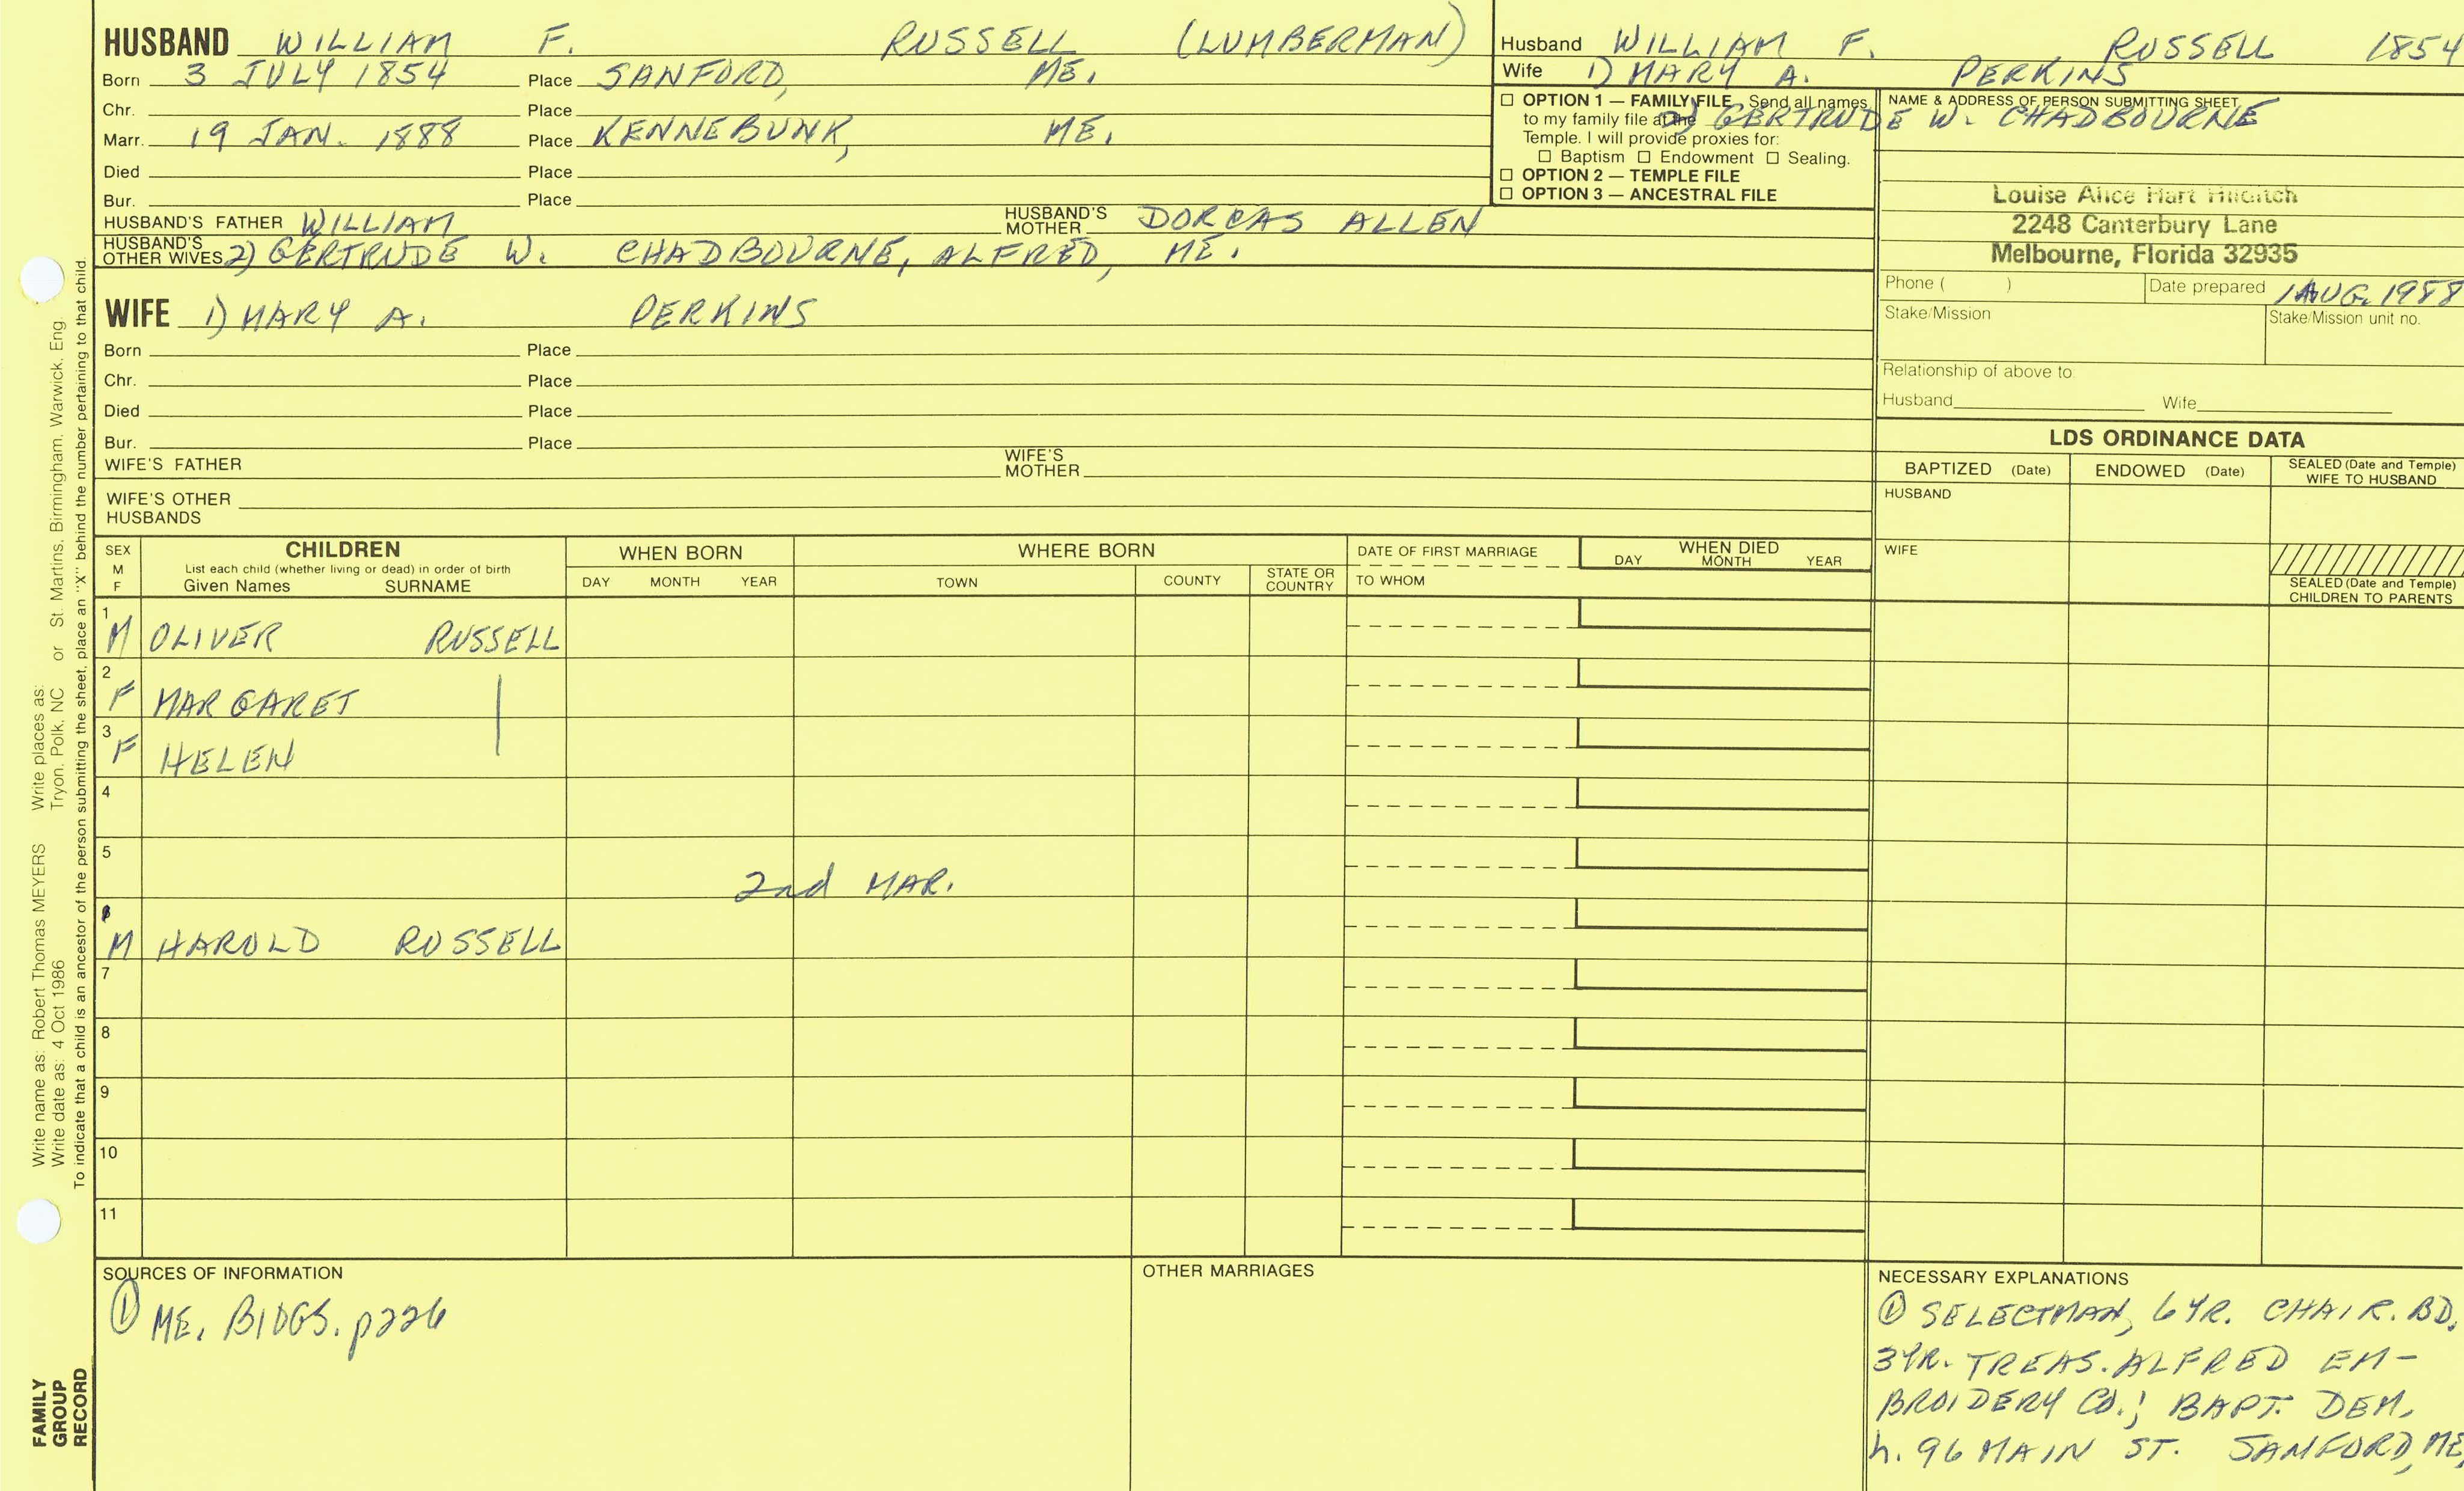 HUSBAND WILLIAM F. RUSSELL (LUMBERMAN)
Born 3 JULY 1854 Place SANFORD, ME.
Chr. Place
Marr. 19 JAN. 1888 Place KENNEBUNK, ME.
Died Place
Bur. Place
HUSBAND'S FATHER WILLIAM HUSBAND'S MOTHER DORCAS ALLEN
HUSBAND'S OTHER WIVES 2) GERTRUDE W. CHADBOURNE, ALFRED, ME.
WIFE 1) MARY A. PERKINS
Born Place
Chr. Place
Died Place
Bur. Place
WIFE'S FATHER WIFE'S MOTHER
WIFE'S OTHER HUSBANDS
Husband WILLIAM F. RUSSELL 1854
Wife 1) MARY A. PERKINS
2) GERTRUDE W. CHADBOURNE
☐ OPTION 1 — FAMILY FILE Send all names
to my family file at the
Temple. I will provide proxies for:
☐ Baptism ☐ Endowment ☐ Sealing.
☐ OPTION 2 — TEMPLE FILE
☐ OPTION 3 — ANCESTRAL FILE
NAME & ADDRESS OF PERSON SUBMITTING SHEET
Louise Alice Hart
2248 Canterbury Lane
Melbourne, Florida 32935
Phone ( ) Date prepared 1 AUG. 1988
Stake/Mission Stake/Mission unit no.
Relationship of above to:
Husband Wife
LDS ORDINANCE DATA
BAPTIZED (Date) ENDOWED (Date) SEALED (Date and Temple) WIFE TO HUSBAND
HUSBAND
WIFE
SEALED (Date and Temple) CHILDREN TO PARENTS
SEX M F
CHILDREN
List each child (whether living or dead) in order of birth
Given Names SURNAME
WHEN BORN
DAY MONTH YEAR
WHERE BORN
TOWN COUNTY STATE OR COUNTRY
DATE OF FIRST MARRIAGE
TO WHOM
WHEN DIED
DAY MONTH YEAR
1 M OLIVER RUSSELL
2 F MARGARET |
3 F HELEN
4
5
2nd MAR.
M HAROLD RUSSELL
7
8
9
10
11
SOURCES OF INFORMATION
① ME. BIOGS. p226
OTHER MARRIAGES
NECESSARY EXPLANATIONS
① SELECTMAN, 6 YR. CHAIR. BD,
3 YR. TREAS. ALFRED EM-
BROIDERY CO.; BAPT. DEM.
h. 96 MAIN ST. SANFORD, ME,
Write name as: Robert Thomas MEYERS Write places as:
Write date as: 4 Oct 1986 Tryon, Polk, NC or St. Martins, Birmingham, Warwick, Eng.
To indicate that a child is an ancestor of the person submitting the sheet, place an "X" behind the number pertaining to that child.
FAMILY
GROUP
RECORD